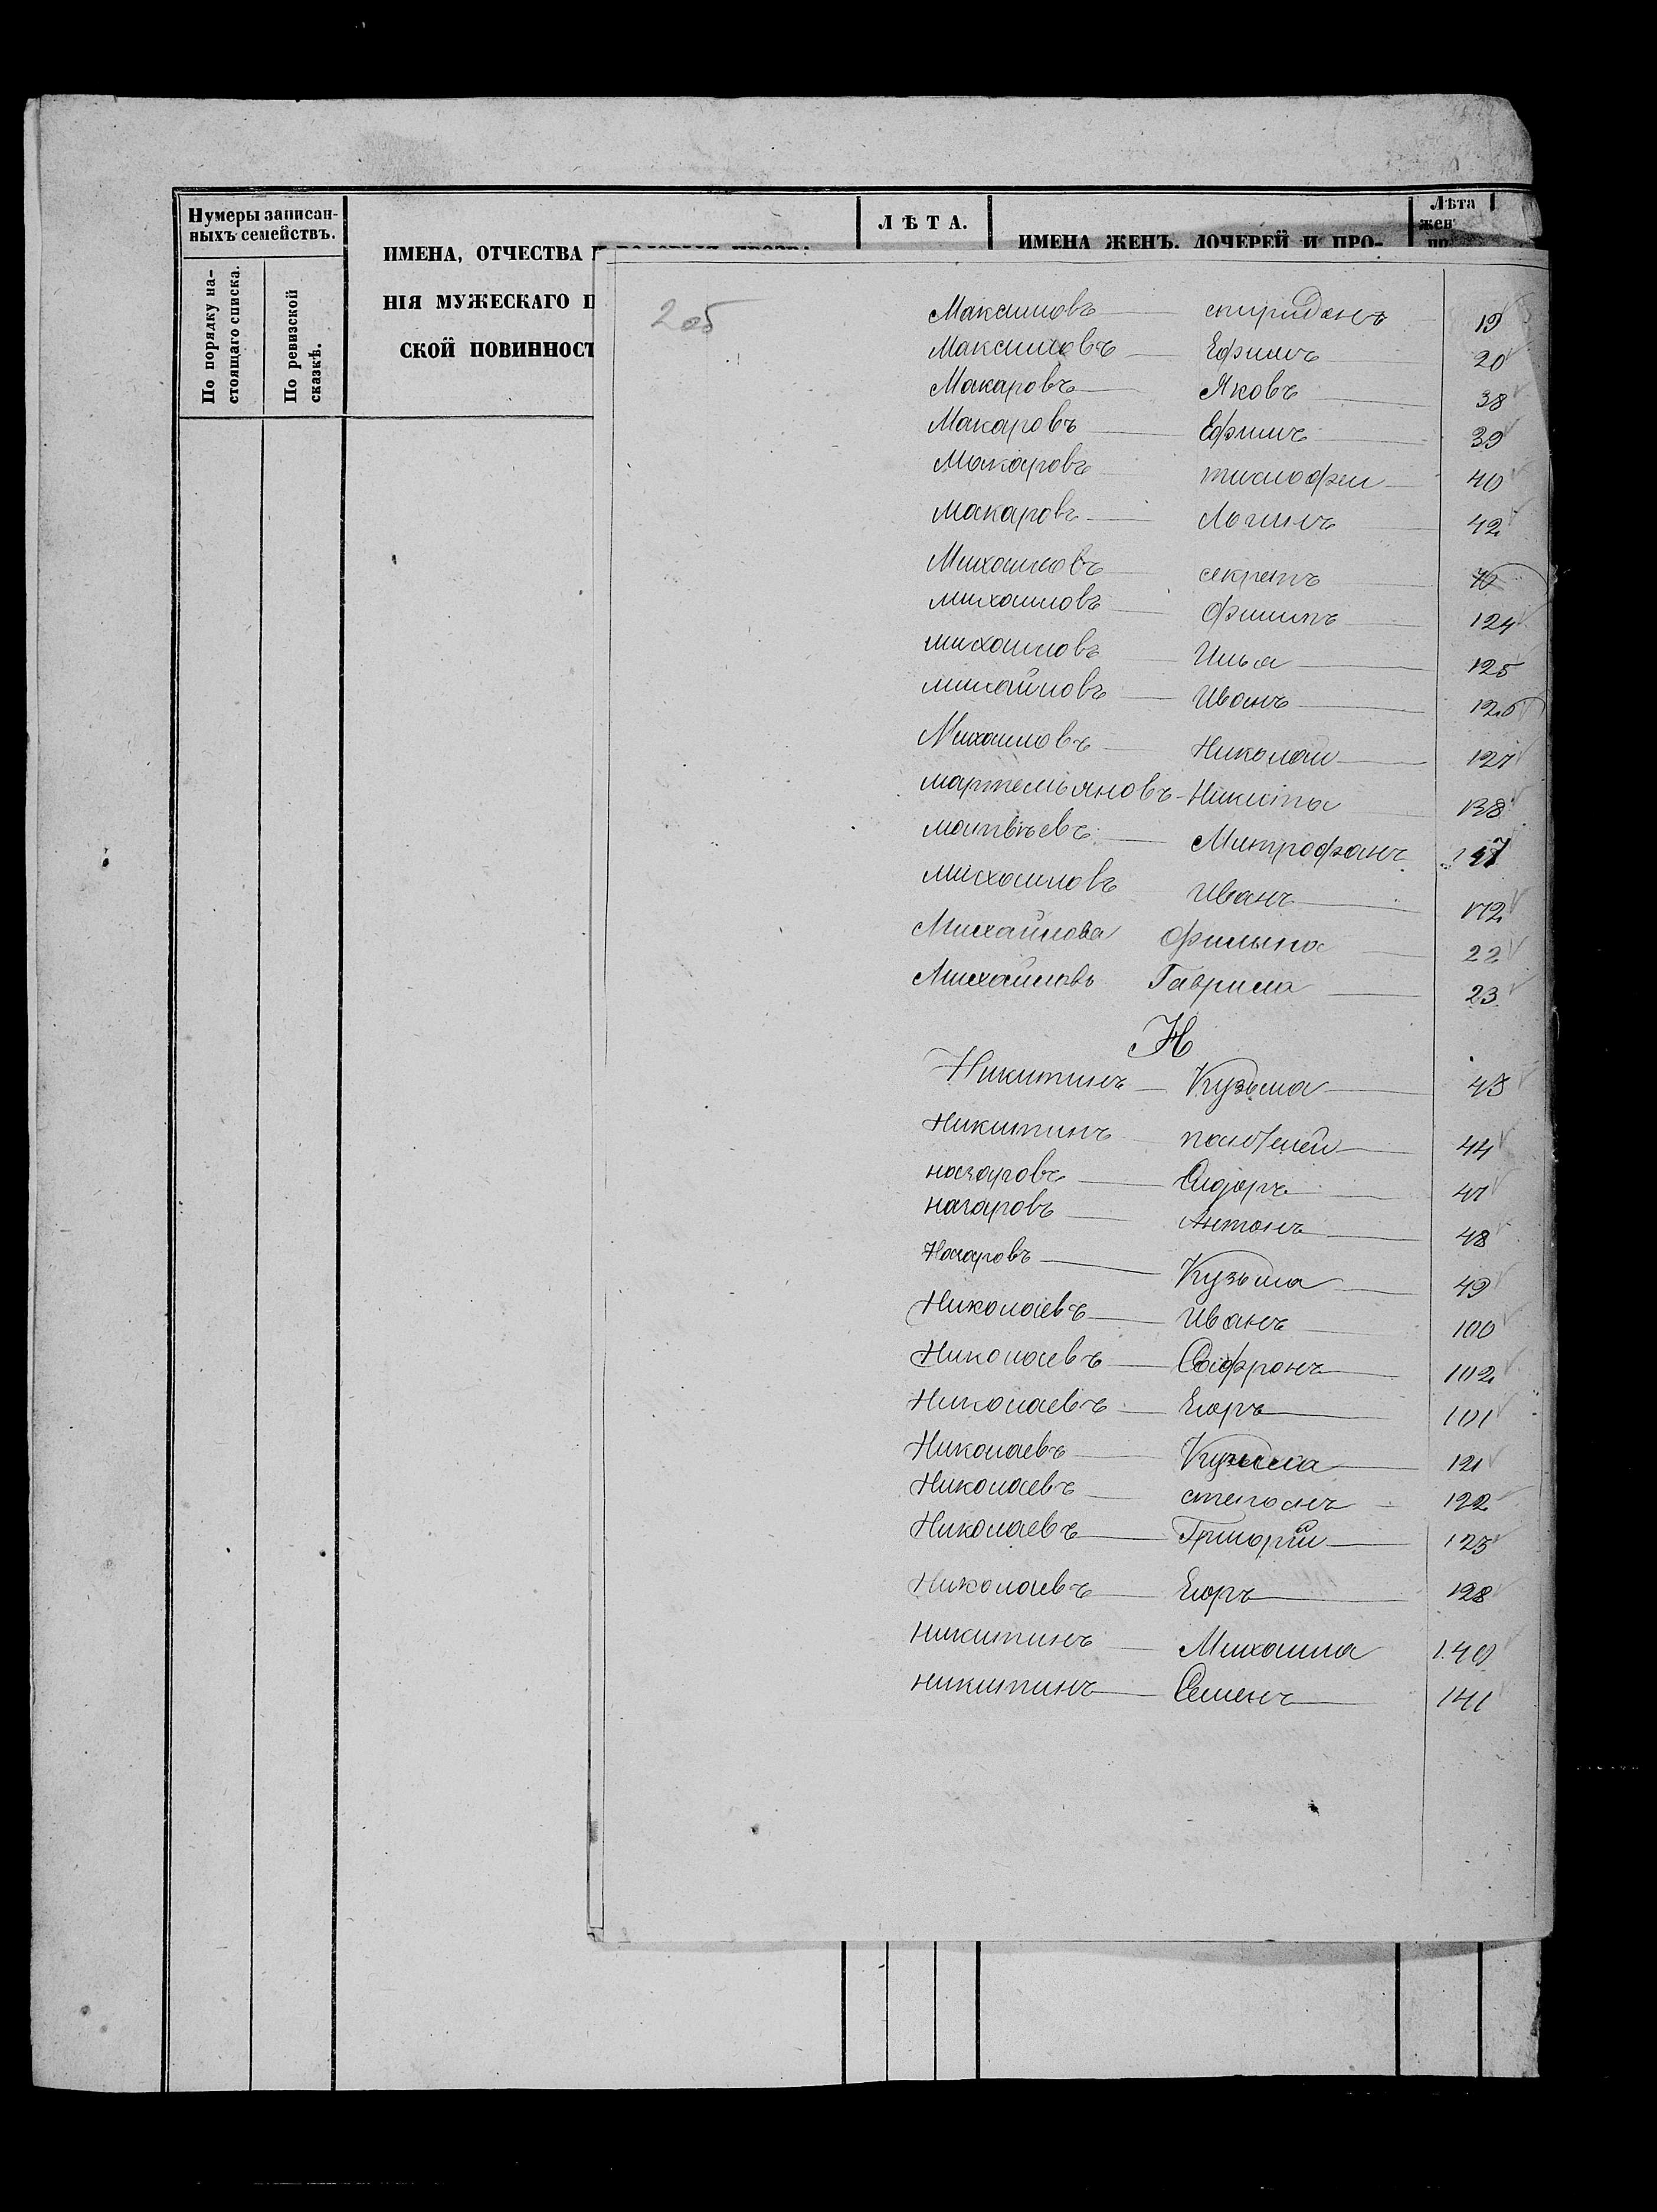 Нумеры записан-
ныхъ семействъ.
По порядку на-
стоящаго списка.
По ревизской
сказкѣ.
ИМЕНА, ОТЧЕСТВА
НІЯ МУЖЕСКАГО П
СКОЙ ПОВИННОСТ
ЛѢТА.
ИМЕНА ЖЕНЪ, ДОЧЕРЕЙ И ПРО-
Лѣта
жен
2об
Максимовъ — спиридонъ 19
Максимовъ — Ефимъ 20
Макаровъ — Яковъ — 38
Макаровъ — Ефимъ — 39
Макаровъ тимофеи — 40
макаровъ — Логинъ 42
Михаиловъ — секретъ —
михаиловъ — Филипъ — 124
михаиловъ Илья — 125
михайловъ — Иванъ — 126
Михаиловъ — Николаи — 127
мартемьяновъ - Никита 138
матвѣевъ — Митрофанъ
михаиловъ Иванъ — 172
Михайлова Филипа — 22
Михайловъ Гаврила — 23
Н
Никитинъ — Кузьма — 43
Никитинъ — 44
назаровъ — Сидоръ — 47
назаровъ — Антонъ — 48
Назаровъ — Кузьма — 49
Николаевъ — Иванъ 100
Николаевъ — Сафронъ — 102
Николаевъ — Егоръ — 101
Николаевъ — Кузьма — 121
Николаевъ — степанъ - 122
Николаевъ — Григорій — 123
Николаевъ — Егоръ — 128
никитинъ — Михаила 140
никитинъ — Семенъ — 141